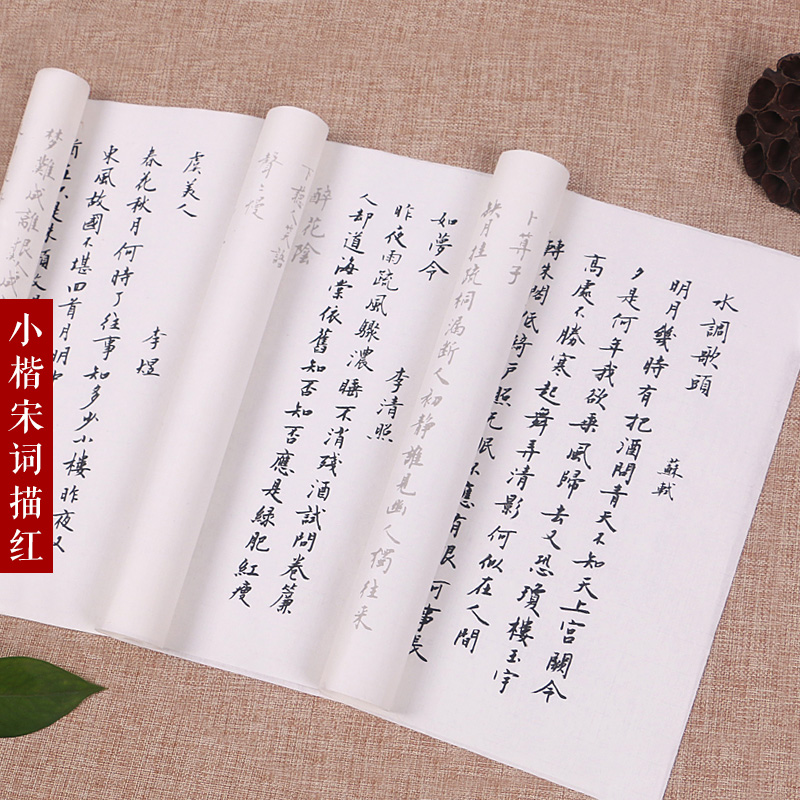 水調歌頭
蘇軾
明月幾時有把酒問青天不知天上宮闕今
夕是何年我欲乘風歸去又恐瓊樓玉宇
高處不勝寒起舞弄清影何似在人間
轉朱閣低綺戶照无眠不應有恨何事長
卜算子
缺月挂疏桐漏斷人初靜誰見幽人獨往来
如夢令
李清照
昨夜雨疏風驟濃睡不消殘酒試問卷簾
人却道海棠依舊知否知否應是綠肥紅瘦
醉花陰
虞美人
李煜
春花秋月何時了往事知多少小樓昨夜又
東風故國不堪回首月明
夢難成離恨
小楷宋词描红